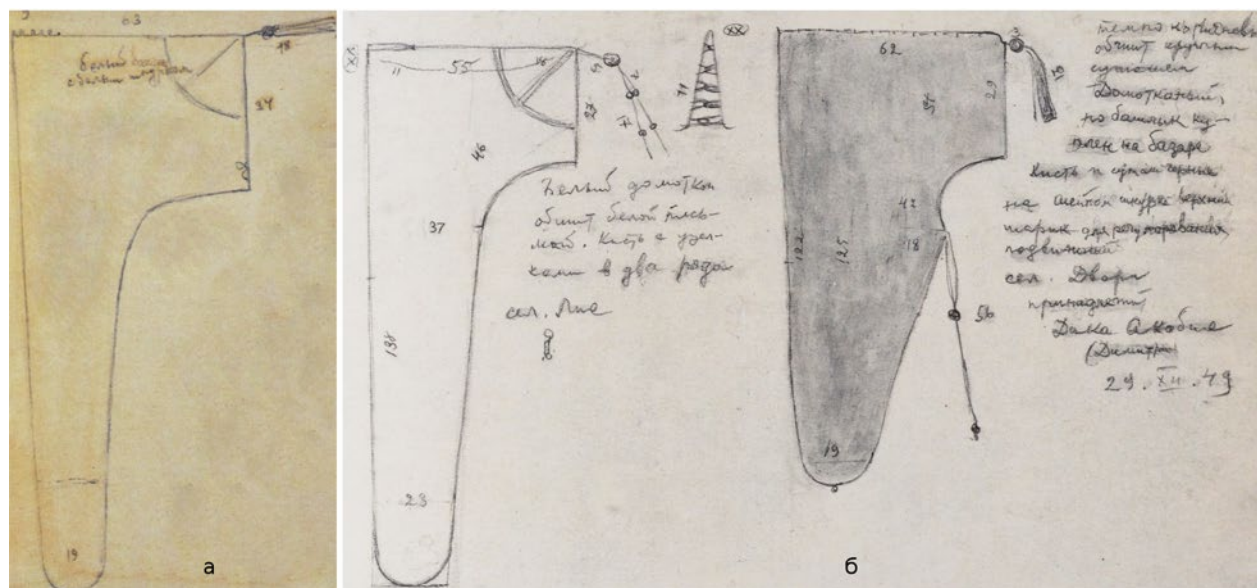 63
18
белый
24
19
а
11
55
18
5
27
71
46
37
138
23
Белый домоткан
обшит белой тесь-
мой. Кисть с узел-
ками в два ряда
сел.
62
29
37
42
18
122
125
56
19
темно коричневый
обшит крупным
сутажем
Домотканый,
но башлык ку-
плен на базаре
Кисть и сутаж черные
на шейном шнуре верхний
шарик для регулирования
подвижной
сел. Двари
принадлежит
(Димитри)
29.XII.49
б